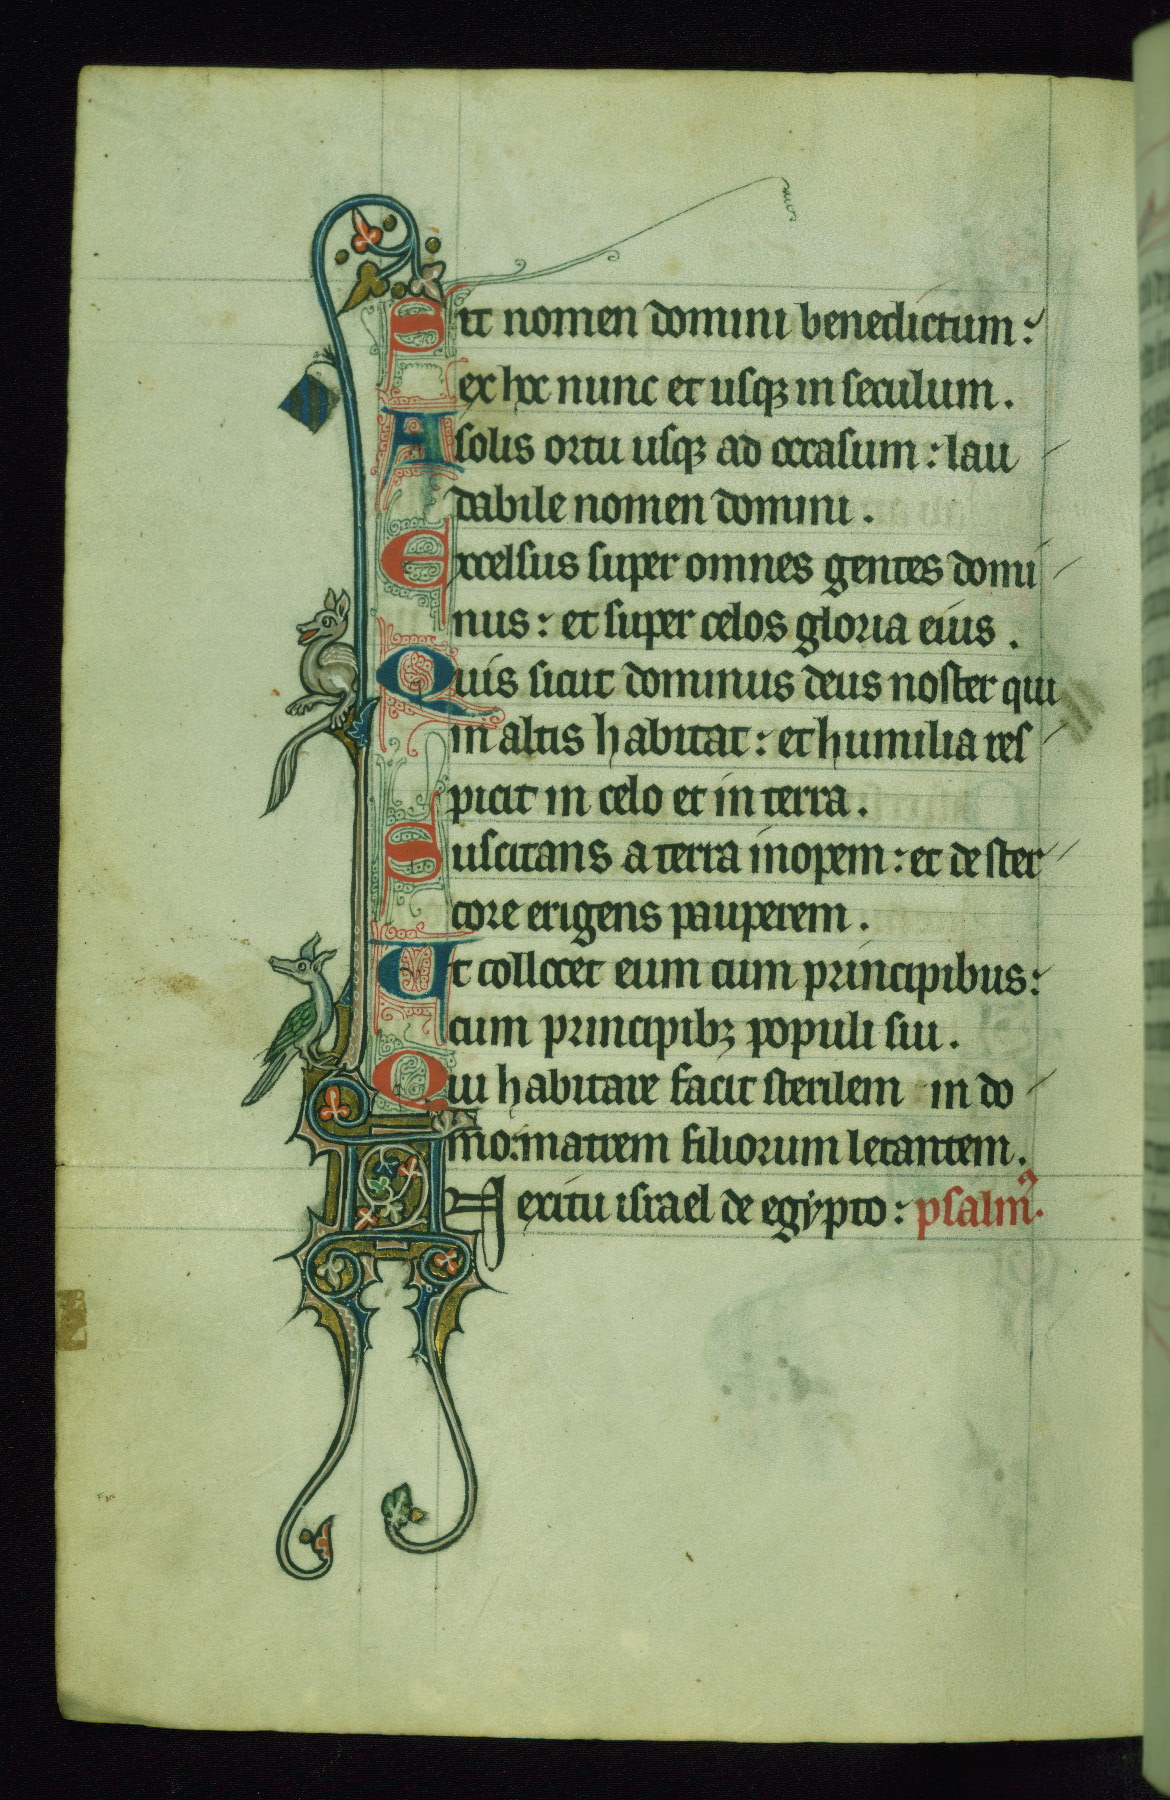 Sit nomen domini benedictum:
ex hoc nunc et usqꝫ in seculum.
A solis ortu usqꝫ ad occasum: lau
dabile nomen domini.
Excelsus super omnes gentes domi
nus: et super celos gloria eius.
Quis sicut dominus deus noster qui
in altis habitat: et humilia res
picit in celo et in terra.
Suscitans a terra inopem: et de ster
core erigens pauperem.
Ut collocet eum cum principibus:
cum principibꝫ populi sui.
Qui habitare facit sterilem in do
mo: matrem filiorum letantem.
In exitu israel de egypto: psalmꝰ.